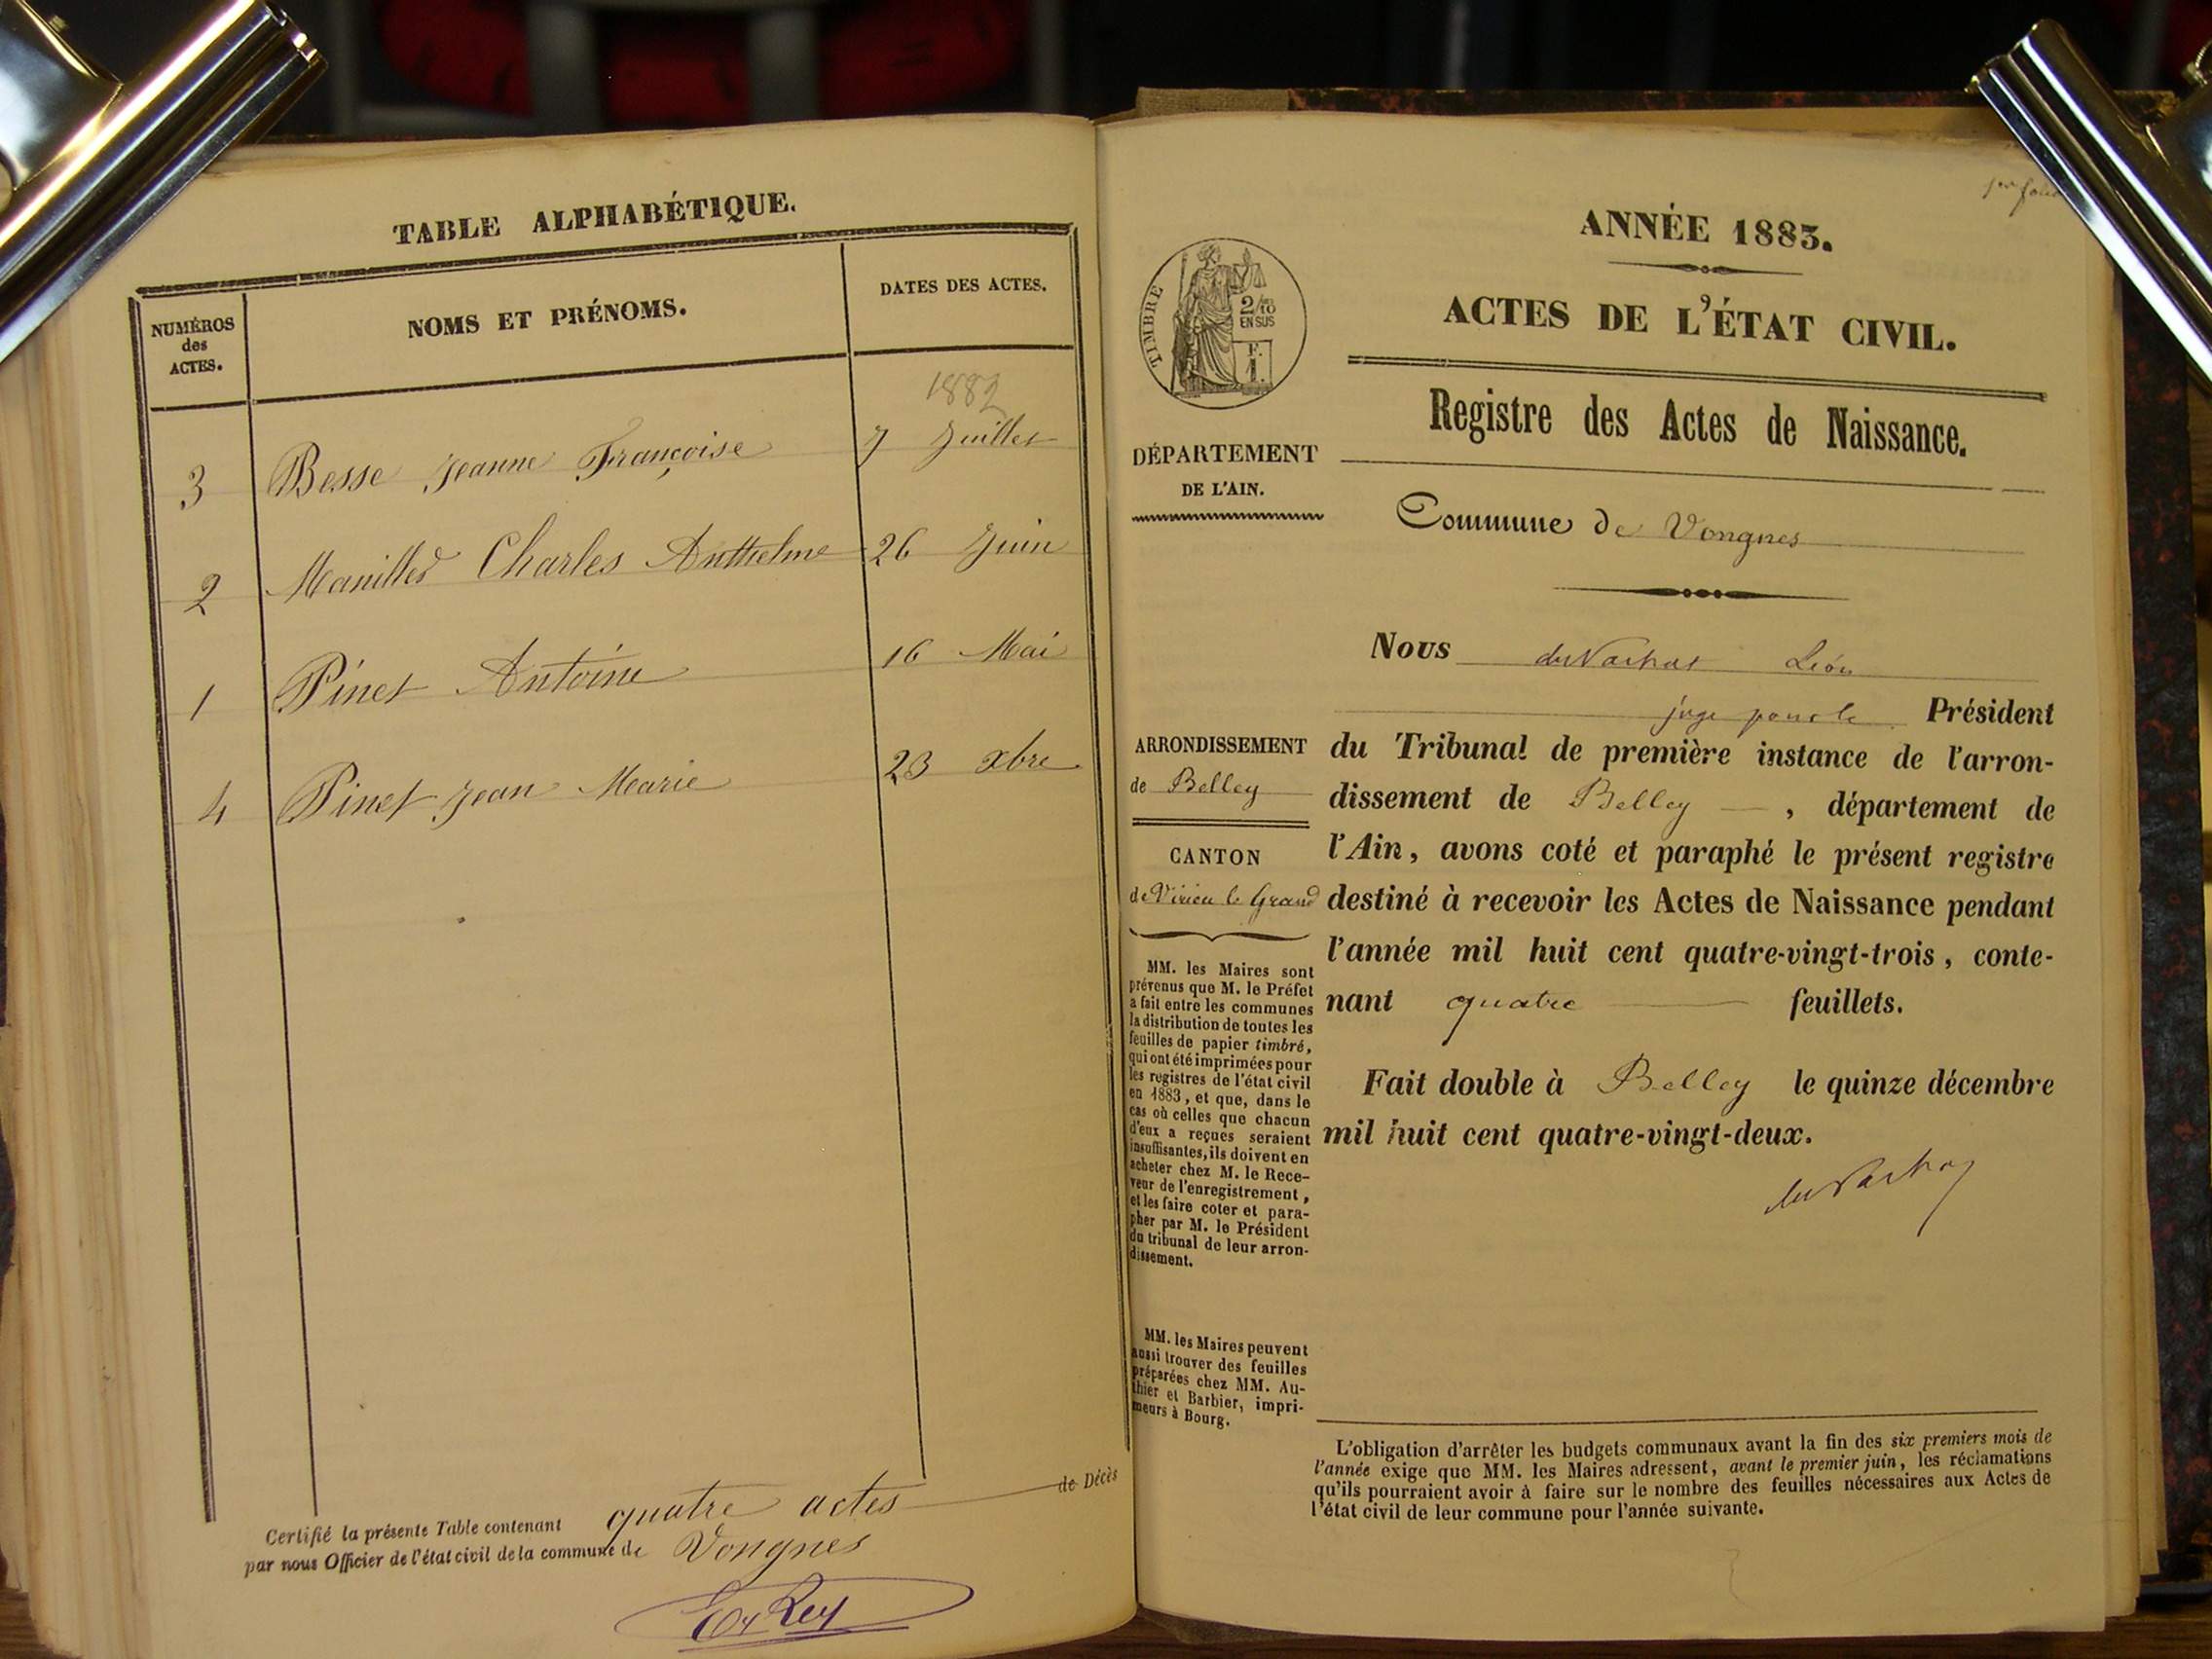 TABLE ALPHABÉTIQUE.
NUMÉROS
des
ACTES.
NOMS ET PRÉNOMS.
DATES DES ACTES.
1882
3 Besse Jeanne Françoise 7 Juillet
2 Charles Anthelme 26 Juin
1 Pinet Antoine 16 Mai
4 Pinet Jean Marie 23 xbre
Certifié la présente Table contenant quatre actes de Décès
par nous Officier de l'état civil de la commune de Vongnes
1er folio
ANNÉE 1883.
ACTES DE L'ÉTAT CIVIL.
Registre des Actes de Naissance.
TIMBRE
2/10
EN SUS
F.
1.
DÉPARTEMENT
DE L'AIN.
Commune de Vongnes
Nous Léon
juge pour le Président
du Tribunal de première instance de l'arron-
dissement de Belley, département de
l'Ain, avons coté et paraphé le présent registre
destiné à recevoir les Actes de Naissance pendant
l'année mil huit cent quatre-vingt-trois, conte-
nant quatre feuillets.
Fait double à Belley le quinze décembre
mil huit cent quatre-vingt-deux.
ARRONDISSEMENT
de Belley
CANTON
de Virieu le Grand
MM. les Maires sont
prévenus que M. le Préfet
a fait entre les communes
la distribution de toutes les
feuilles de papier timbré,
qui ont été imprimées pour
les registres de l'état civil
en 1883, et que, dans le
cas où celles que chacun
d'eux a reçues seraient
insuffisantes, ils doivent en
acheter chez M. le Rece-
veur de l'enregistrement,
et les faire coter et para-
pher par M. le Président
du tribunal de leur arron-
dissement.
MM. les Maires peuvent
aussi trouver des feuilles
préparées chez MM. Au-
thier et Barbier, impri-
meurs à Bourg.
L'obligation d'arrêter les budgets communaux avant la fin des six premiers mois de
l'année exige que MM. les Maires adressent, avant le premier juin, les réclamations
qu'ils pourraient avoir à faire sur le nombre des feuilles nécessaires aux Actes de
l'état civil de leur commune pour l'année suivante.